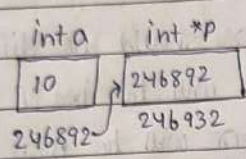 int a int *p
10 246892
246892 246932